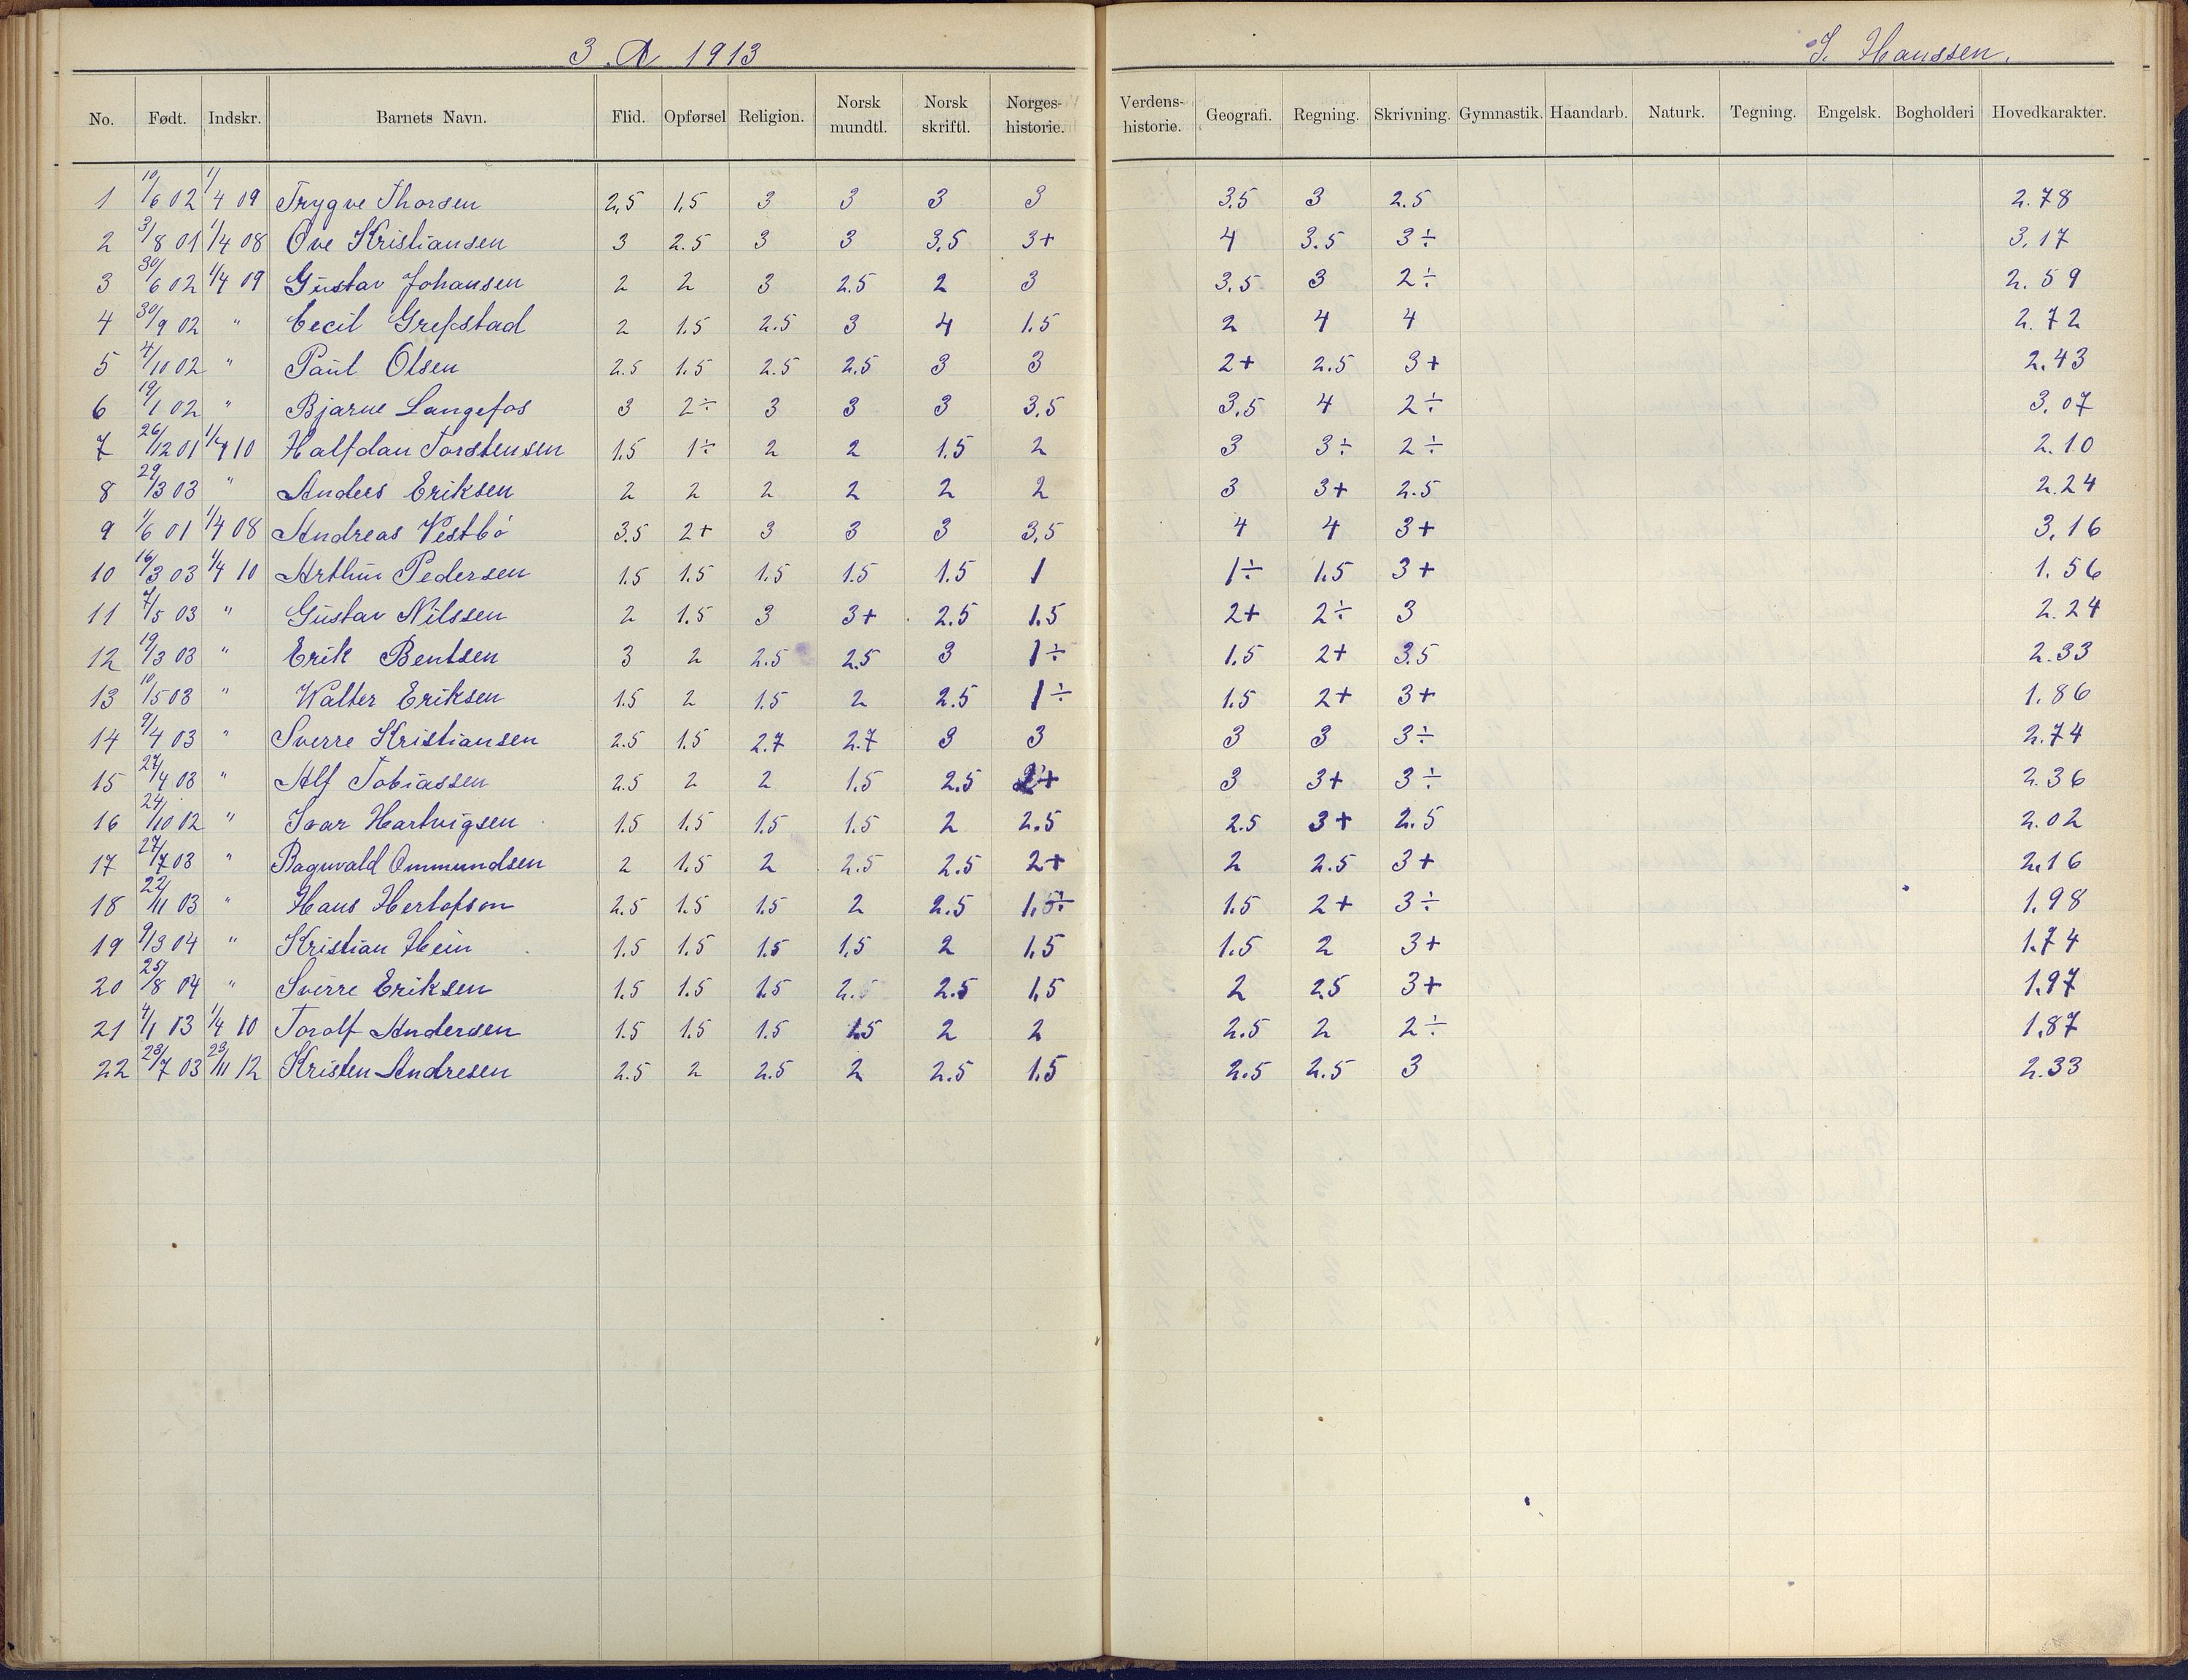 3. A 1913 J. Hanssen.
No. Født. Indskr. Barnets Navn. Flid. Opførsel Religion. Norsk mundtl. Norsk skriftl. Norges-historie. Verdens-historie. Geografi. Regning. Skrivning. Gymnastik. Haandarb. Naturk. Tegning. Engelsk. Bogholderi Hovedkarakter.
1 10/6 02 1/4 09 Trygve Thorsen 2,5 1,5 3 3 3 3 3.5 3 2.5 2.78
2 3/8 01 1/4 08 Ove Kristiansen 3 2.5 3 3 3,5 3+ 4 3.5 3÷ 3,17
3 30/6 02 1/4 09 Gustav Johansen 2 2 3 2.5 2 3 3.5 3 2÷ 2.59
4 30/9 02 " Cecil Grefstad 2 1.5 2.5 3 4 1.5 2 4 4 2.72
5 4/10 02 " Paul Olsen 2.5 1.5 2.5 2.5 3 3 2+ 2.5 3+ 2.43
6 19/1 02 " Bjarne Langefos 3 2÷ 3 3 3 3.5 3.5 4 2÷ 3,07
7 26/12 01 1/4 10 Halfdan Torstensen 1.5 1÷ 2 2 1.5 2 3 3÷ 2÷ 2.10
8 29/3 03 " Anders Eriksen 2 2 2 2 2 2 3 3+ 2.5 2.24
9 1/6 01 1/4 08 Andreas Vestbö 3.5 2+ 3 3 3 3,5 4 4 3+ 3,16
10 16/3 03 1/4 10 Arthur Pedersen 1.5 1.5 1.5 1.5 1.5 1 1÷ 1.5 3+ 1.56
11 7/5 03 " Gustav Nilssen 2 1.5 3 3+ 2.5 1.5 2+ 2÷ 3 2.24
12 19/3 03 " Erik Bentsen 3 2 2.5 2.5 3 1÷ 1.5 2+ 3.5 2.33
13 10/5 03 " Walter Eriksen 1.5 2 1.5 2 2.5 1÷ 1.5 2+ 3+ 1.86
14 9/4 03 " Sverre Kristiansen 2.5 1.5 2.7 2.7 3 3 3 3 3÷ 2.74
15 27/4 03 " Alf Tobiassen 2.5 2 2 1.5 2.5 2+ 3 3+ 3÷ 2.36
16 24/10 02 " Ivar Hartvigsen 1.5 1.5 1.5 1.5 2 2.5 2.5 3+ 2.5 2.02
17 27/7 03 " Ragnvald Ommundsen 2 1.5 2 2.5 2.5 2+ 2 2.5 3+ 2.16
18 22/11 03 " Hans Herlofson 2.5 1.5 1.5 2 2.5 1.5÷ 1.5 2+ 3÷ 1.98
19 9/3 04 " Kristian Hein 1.5 1.5 1.5 1.5 2 1,5 1.5 2 3+ 1.74
20 25/8 04 " Sverre Eriksen 1.5 1.5 1.5 2.5 2.5 1,5 2 2.5 3+ 1.97
21 4/1 13 1/4 10 Torolf Andersen 1.5 1.5 1.5 1.5 2 2 2.5 2 2÷ 1.87
22 23/7 03 23/11 12 Kristen Andresen 2.5 2 2.5 2 2.5 1.5 2.5 2.5 3 2.33